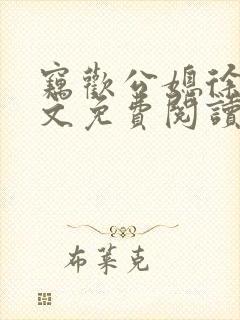 竊歡公媳徐
文免費閱讀
布萊克